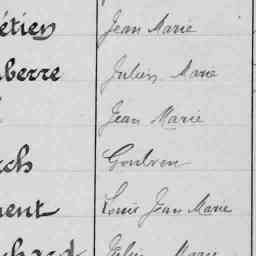 étien Jean Marie
berre Julien Marie
Jean Marie
ch Goulven
ment Louis Jean Marie
chard Julien Marie